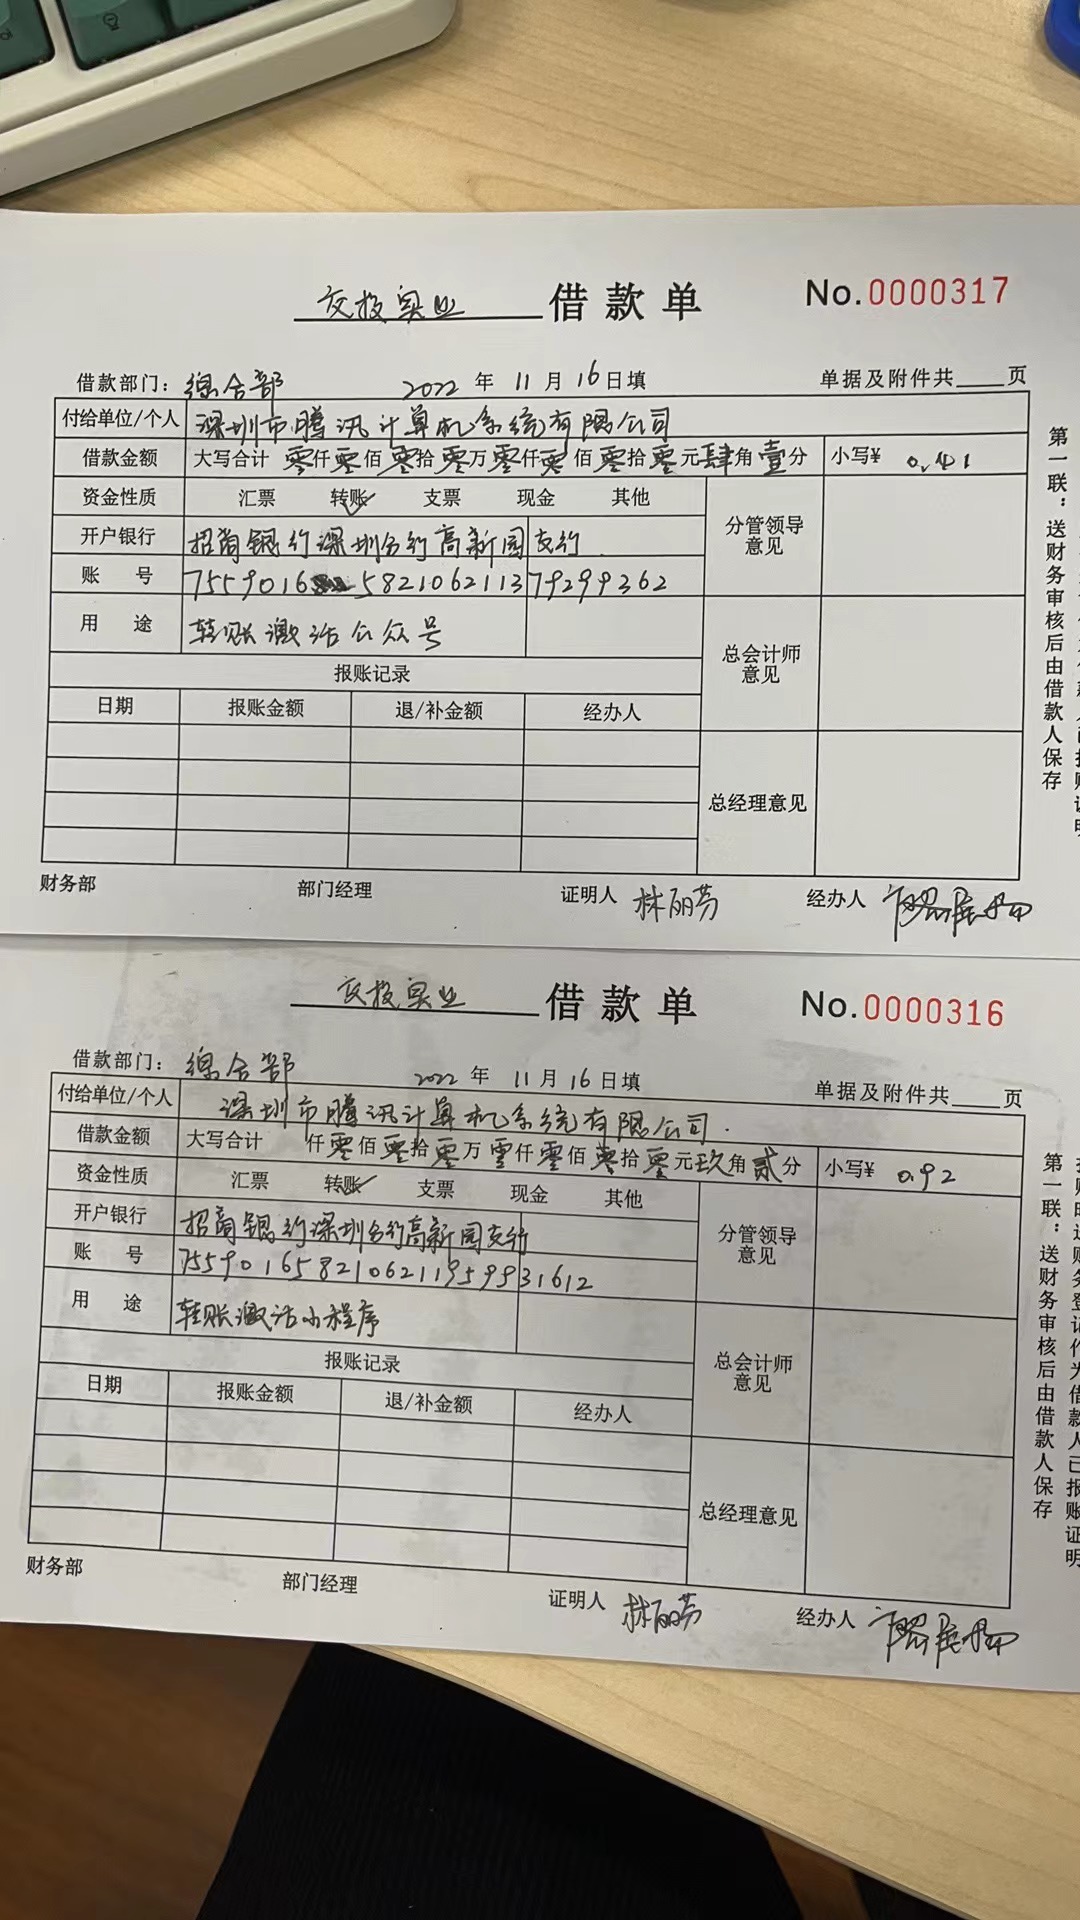 交投实业 借款单 No.0000317
借款部门：综合部 2022年11月16日填 单据及附件共 页
付给单位/个人 深圳市腾讯计算机系统有限公司
借款金额 大写合计 零仟零佰零拾零万零仟零佰零拾零元肆角壹分 小写¥ 0.41
资金性质 汇票 转账✓ 支票 现金 其他
分管领导意见
开户银行 招商银行深圳分行高新园支行
账号 755901658210621137929 9362
用途 转账激活公众号
总会计师意见
报账记录
日期 报账金额 退/补金额 经办人
总经理意见
财务部 部门经理 证明人 林丽芳 经办人
第一联：送财务审核后由借款人保存
交投实业 借款单 No.0000316
借款部门：综合部 2022年11月16日填 单据及附件共 页
付给单位/个人 深圳市腾讯计算机系统有限公司.
借款金额 大写合计 仟零佰零拾零万零仟零佰零拾零元玖角贰分 小写¥ 0.92
资金性质 汇票 转账✓ 支票 现金 其他
分管领导意见
开户银行 招商银行深圳分行高新园支行
账号
用途 转账激活小程序
总会计师意见
报账记录
日期 报账金额 退/补金额 经办人
总经理意见
财务部 部门经理 证明人 林丽芳 经办人
第一联：送财务审核后由借款人保存